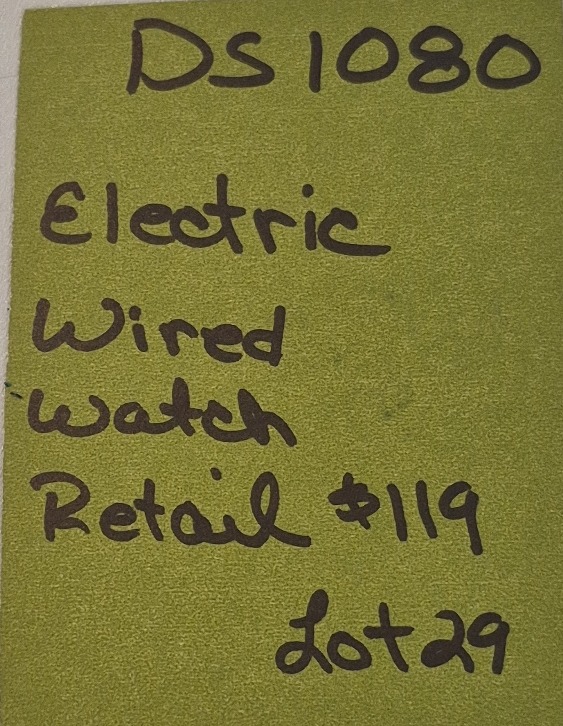 DS1080
Electric
Wired
Watch
Retail $119
Lot 29